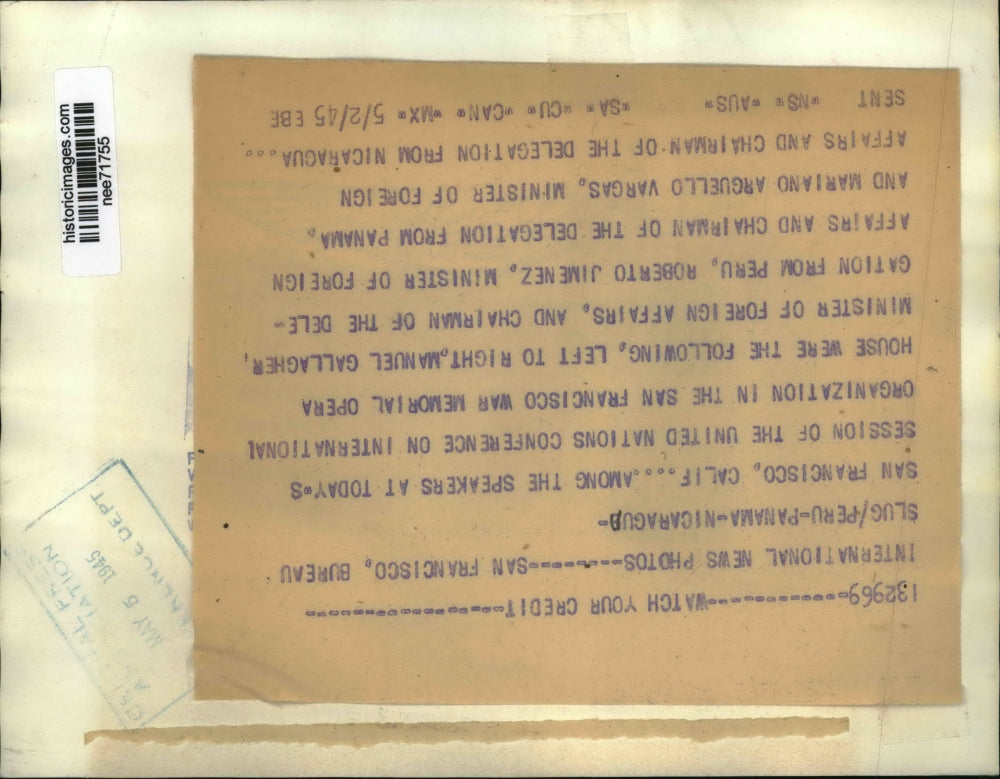 132969---------------WATCH YOUR CREDIT-------------------
INTERNATIONAL NEWS PHOTOS---------SAN FRANCISCO, BUREAU
SLUG/PERU-PANAMA-NICARAGUA-
SAN FRANCISCO, CALIF....AMONG THE SPEAKERS AT TODAY'S
SESSION OF THE UNITED NATIONS CONFERENCE ON INTERNATIONAL
ORGANIZATION IN THE SAN FRANCISCO WAR MEMORIAL OPERA
HOUSE WERE THE FOLLOWING, LEFT TO RIGHT,MANUEL GALLAGHER,
MINISTER OF FOREIGN AFFAIRS, AND CHAIRMAN OF THE DELE-
GATION FROM PERU, ROBERTO JIMENEZ, MINISTER OF FOREIGN
AFFAIRS AND CHAIRMAN OF THE DELEGATION FROM PANAMA,
AND MARIANO ARGUELLO VARGAS, MINISTER OF FOREIGN
AFFAIRS AND CHAIRMAN OF THE DELEGATION FROM NICARAGUA....
SENT "NS" "AUS" "SA" "CU" "CAN" "MX" 5/2/45 EBE
historicimages.com
nee71755
MAY 5 1945
DEPT